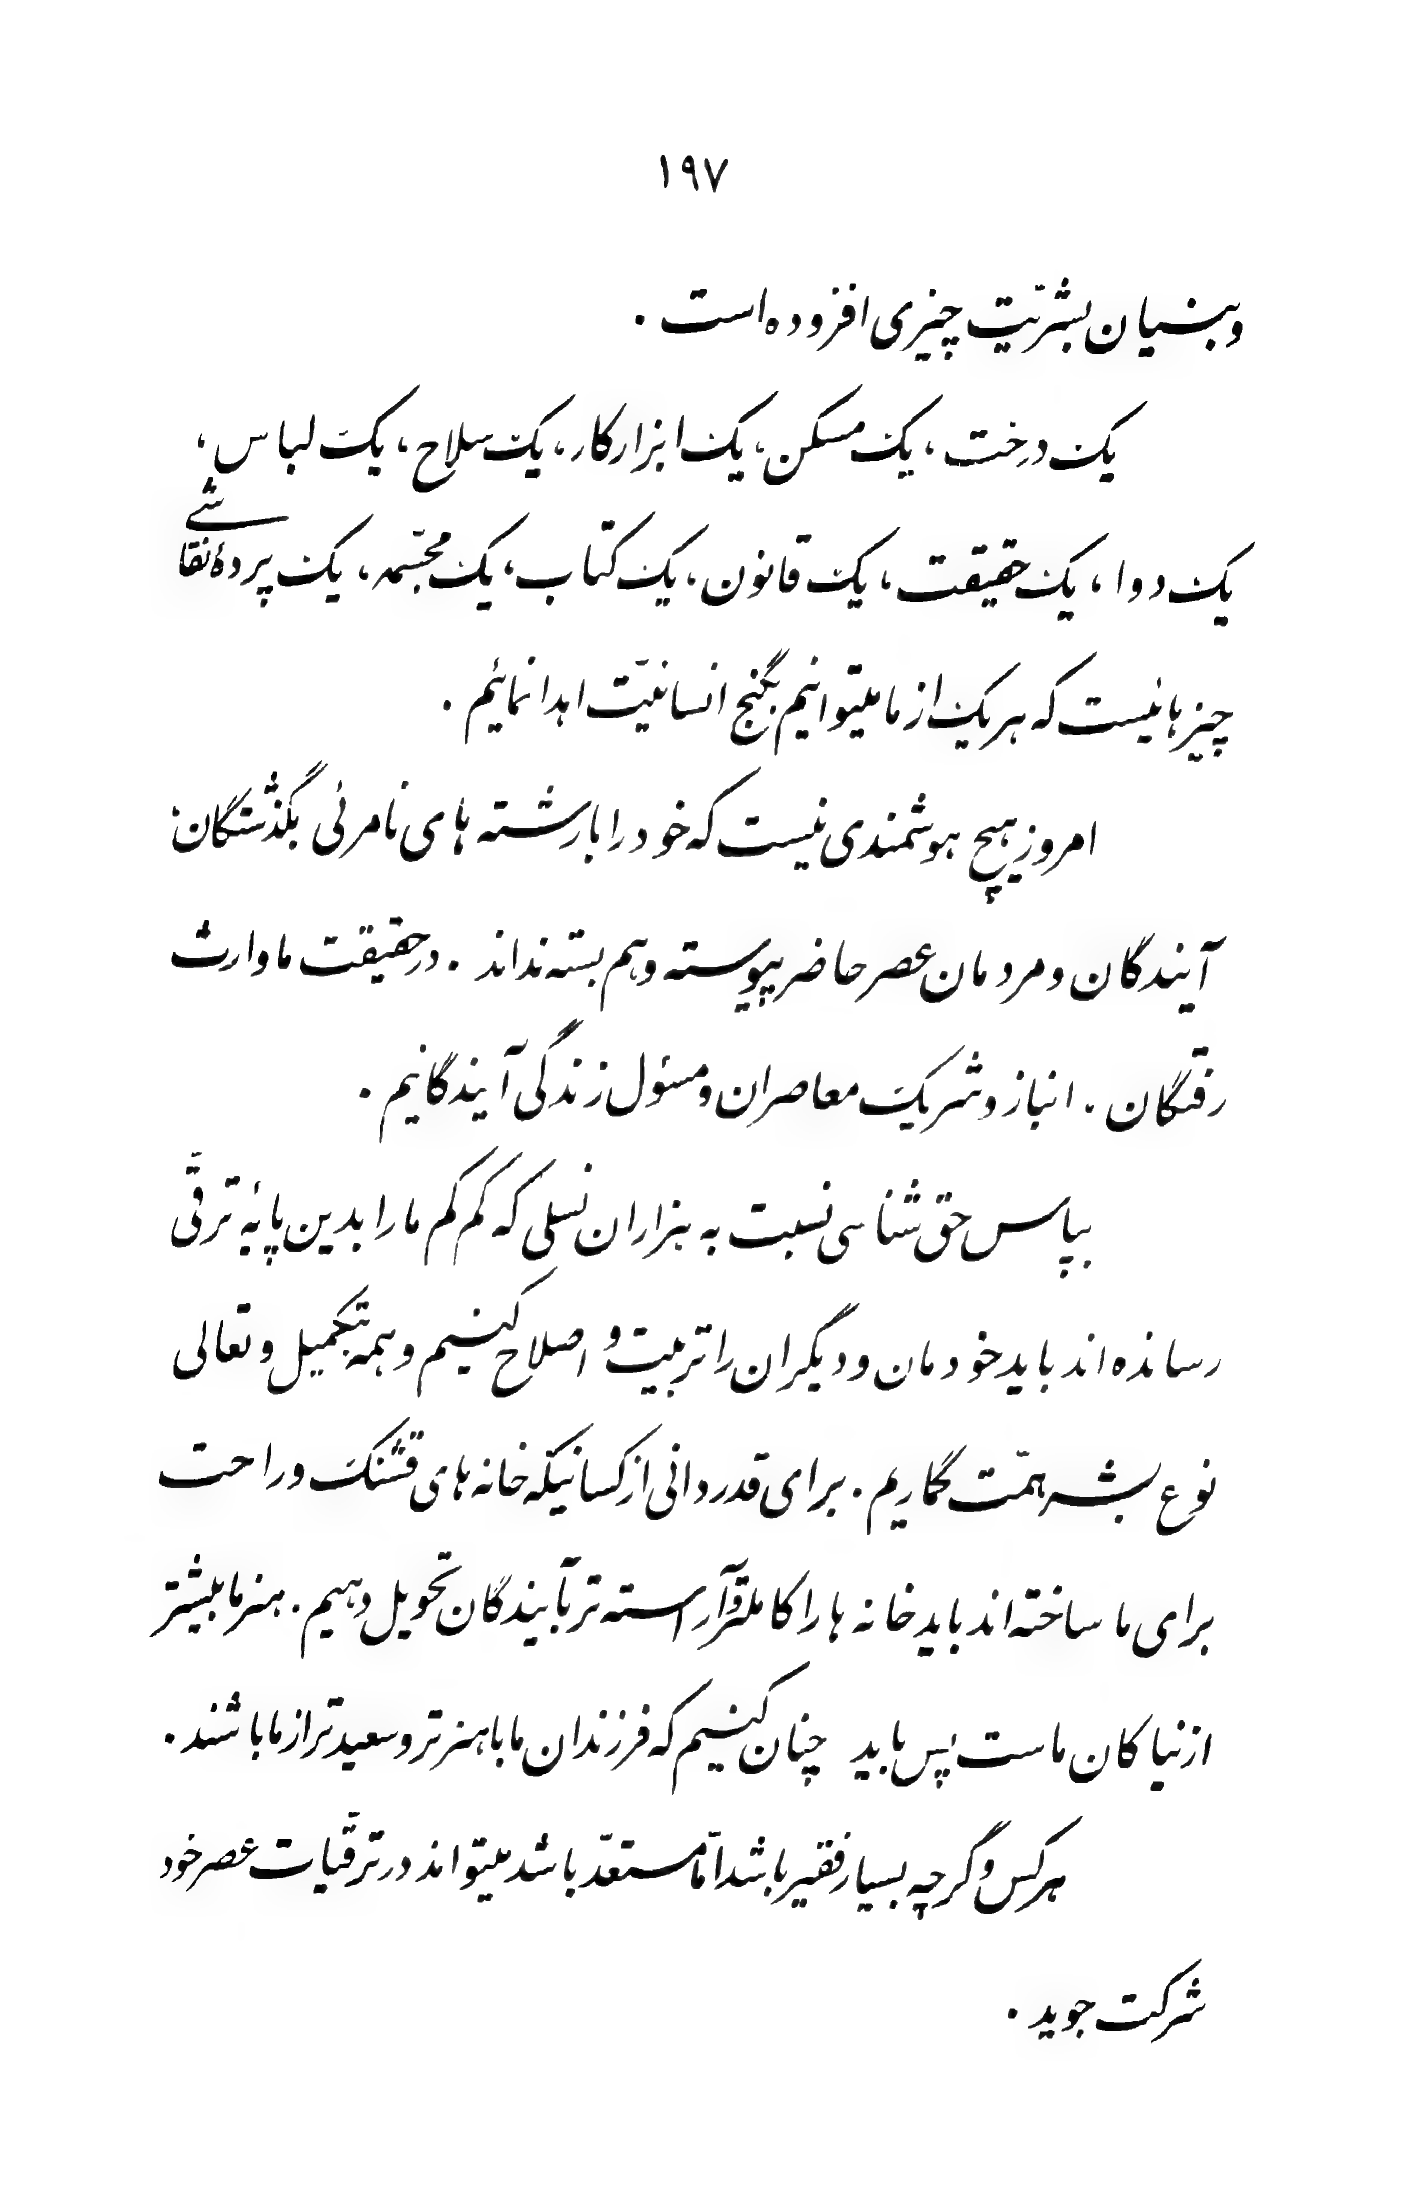 ۱۹۷
وبنیان بشریّت چیزی افزوده است .
یک درخت ، یک مسکن، یک ابزارکار، یک سلاح ، یک لباس ،
یک دوا ، یک حقیقت ، یک قانون ، یک کتاب ، یک مجسّمه ، یک پردهٔ نقاشی
چیزهائیست که هریک از ما میتوانیم بگنج انسانیّت اهدا نمائیم .
امروز هیچ هوشمندی نیست که خود را با رشته های نامرئی بگذشتگان،
آیندگان ومردمان عصر حاضر پیوسته و هم بسته نداند . درحقیقت ما وارث
رفتگان . انباز و شریک معاصران و مسئول زندگی آیندگانیم .
بپاس حق شناسی نسبت به هزاران نسلی که کم کم ما را بدین پایهٔ ترقّی
رسانده اند باید خودمان و دیگران را تربیت و اصلاح کنیم و همه بتکمیل و تعالی
نوع بشر همّت گماریم . برای قدردانی از کسانیکه خانه های قشنگ و راحت
برای ما ساخته اند باید خانه ها را کاملتر و آراسته تر بآیندگان تحویل دهیم . هنر ما بیشتر
از نیاکان ماست پس باید چنان کنیم که فرزندان ما باهنرتر و سعیدتر از ما باشند .
هرکس وگرچه بسیار فقیر باشد امّا مستعدّ باشد میتواند در ترقّیات عصر خود
شرکت جوید .